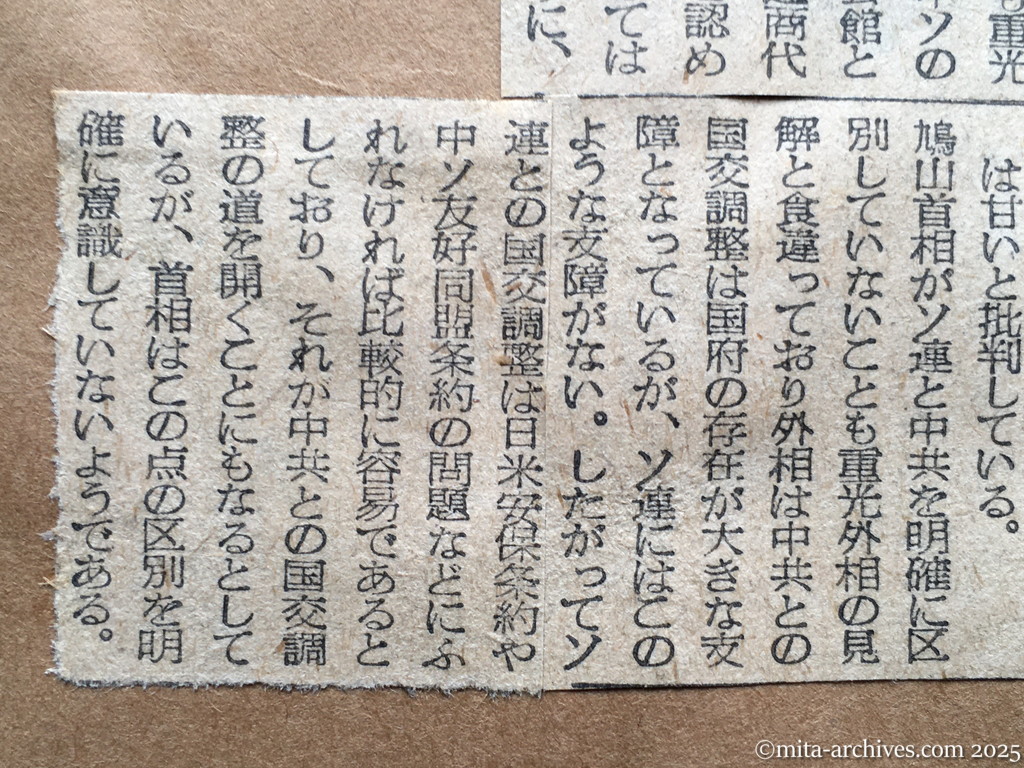 も重光
ソの
館と
商代
認め
ては
に、
は甘いと批判している。
鳩山首相がソ連と中共を明確に区
別していないことも重光外相の見
解と食違っており外相は中共との
国交調整は国府の存在が大きな支
障となっているが、ソ連にはこの
ような支障がない。したがってソ
連との国交調整は日米安保条約や
中ソ友好同盟条約の問題などにふ
れなければ比較的に容易であると
しており、それが中共との国交調
整の道を開くことにもなるとして
いるが、首相はこの点の区別を明
確に意識していないようである。
©mita-archives.com 2025